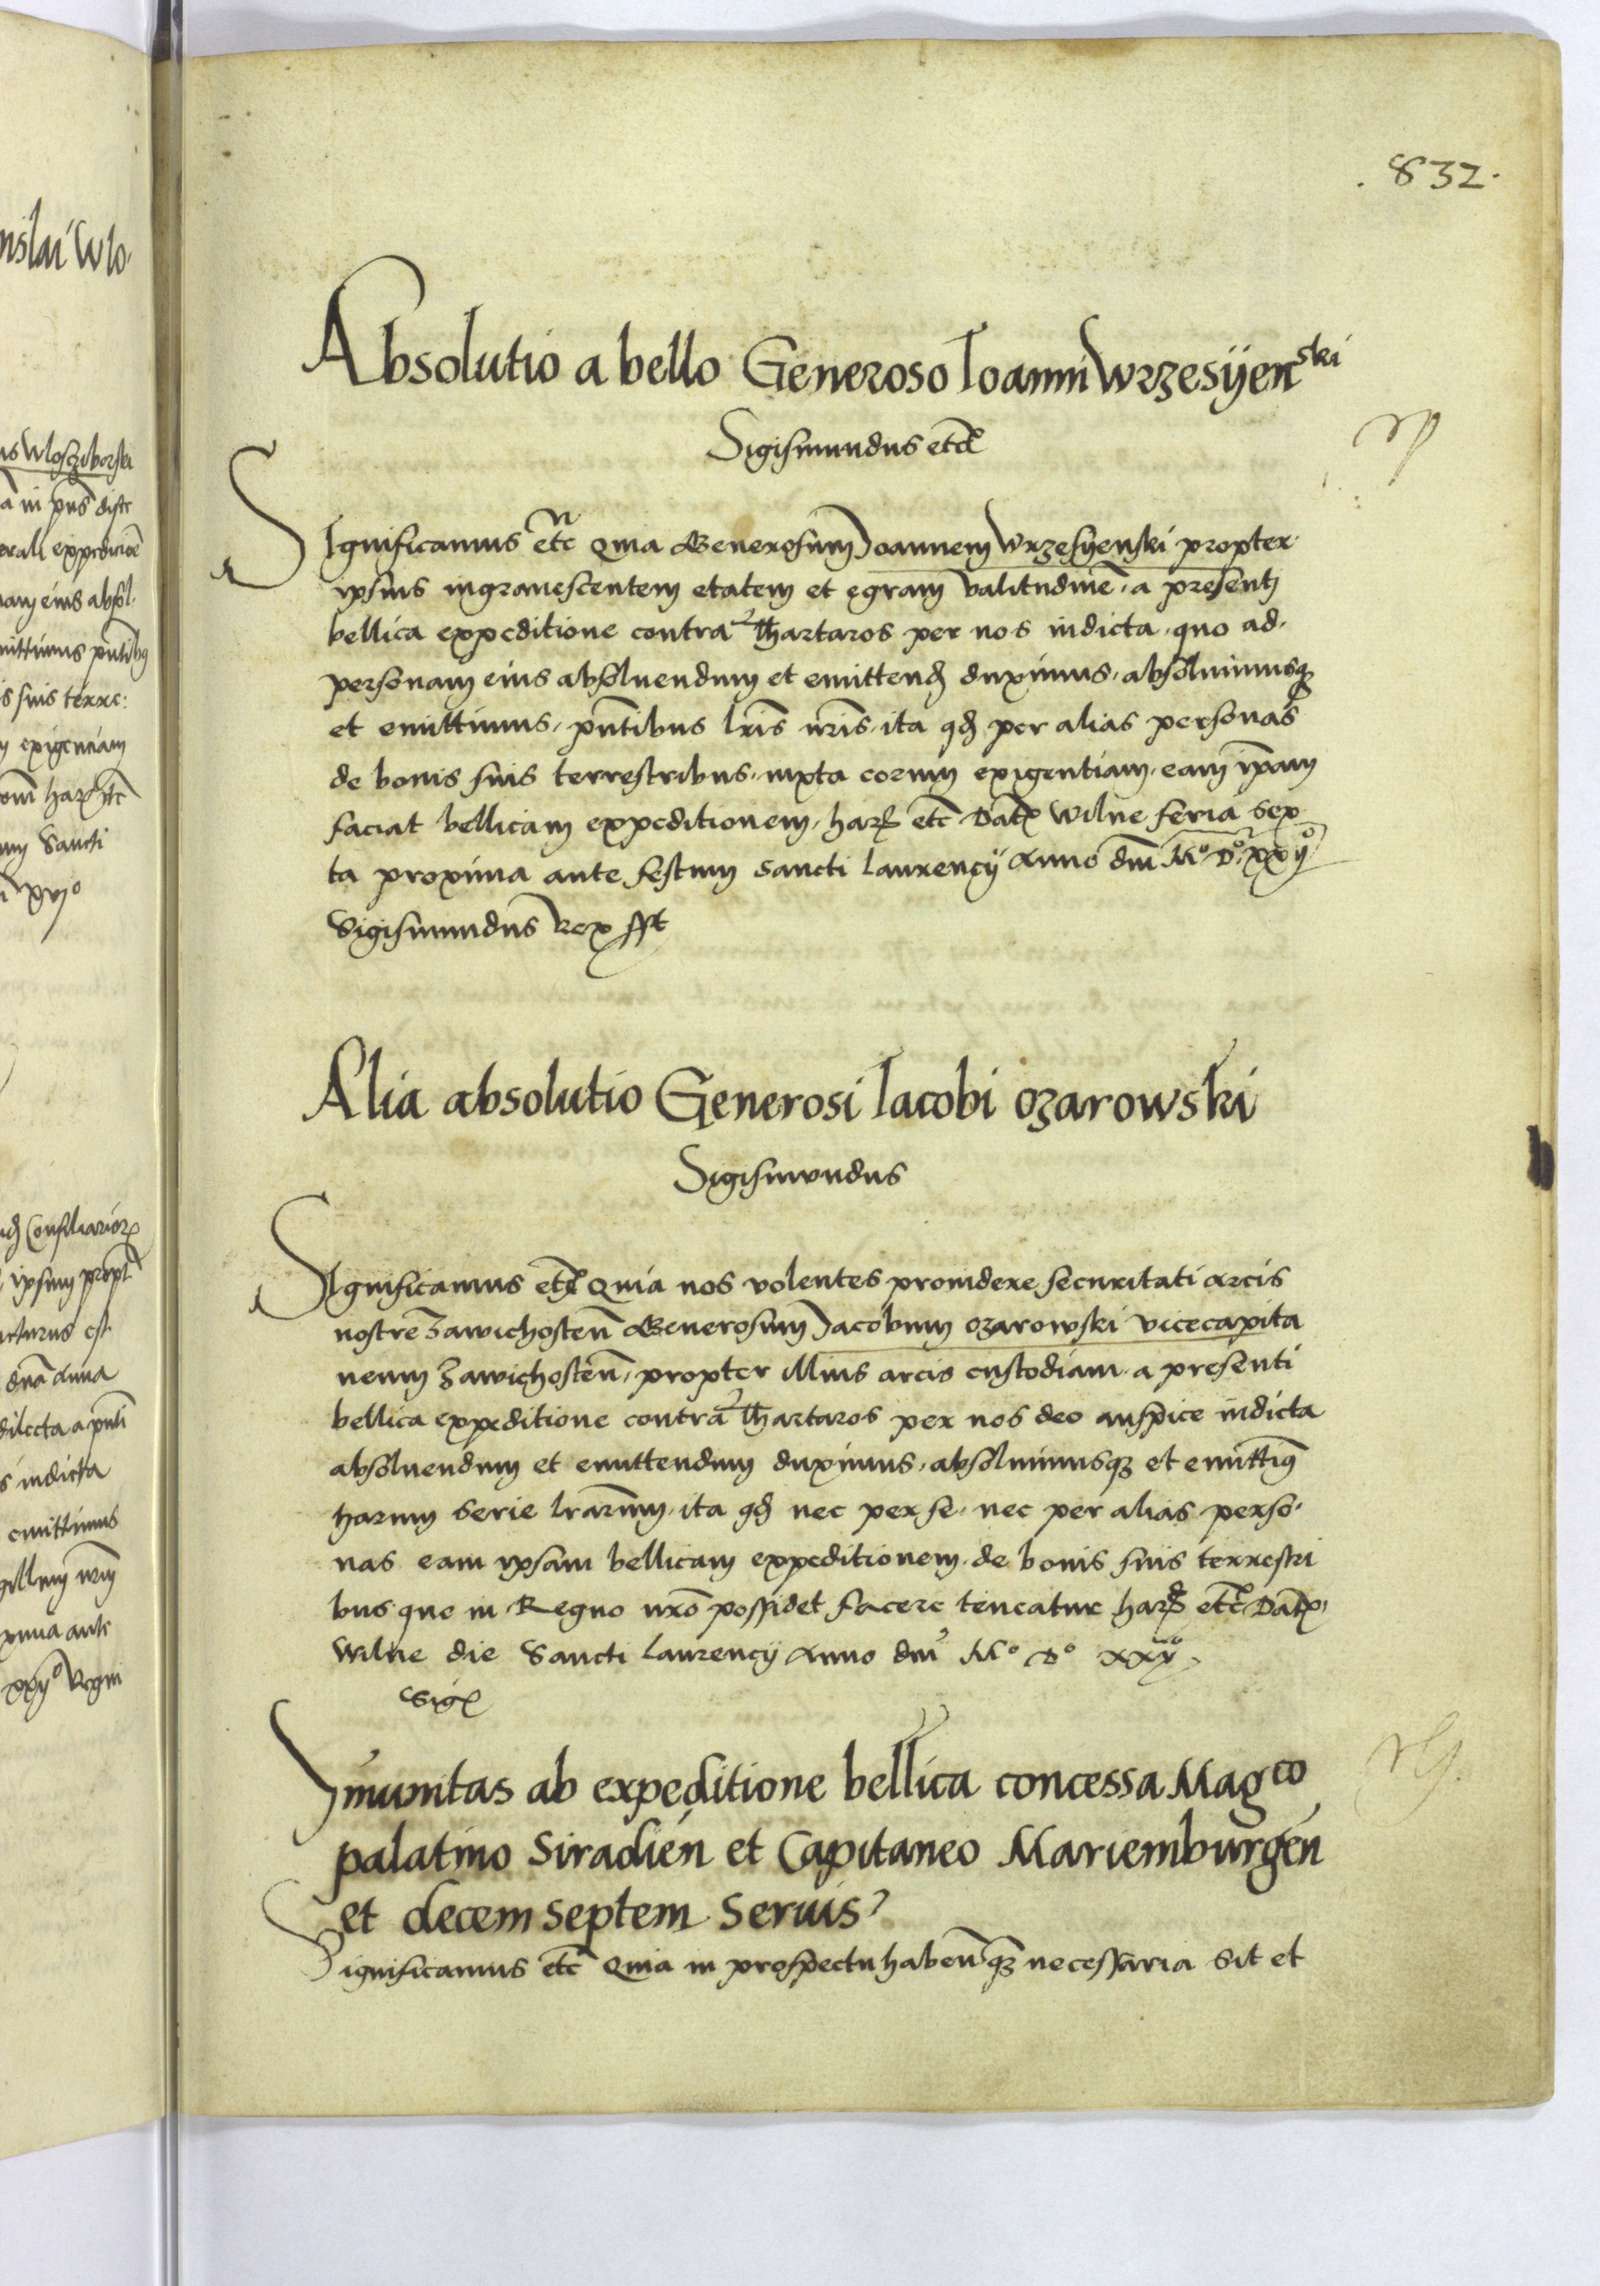 . 832 .
Absolutio a bello Generoso Ioanni Wrzesÿenski
Sigismundus etc̃
Significamus etc̃ Quia Generosum Joannem Wrzesÿenski propter
ipsius ingravescentem etatem et egram valitudinẽ, a presenti
bellica expeditione contra Thartaros per nos indicta, quo ad
personam eius absolvendum et emittend duximus, absolvimusq
et emittimus, pñtibus lr̃is nr̃is, ita qd per alias personas
de bonis suis terrestribus, iuxta eorum exigentiam, eam ip̃am
faciat bellicam expeditionem, har etc̃ Dat Wilne feria sex
ta proxima ante festum sancti laurencÿ Anno dm̃ Mº Dº xxijº
Sigismundus Rex sst
Alia absolutio Generosi Iacobi ozarowski
Sigismundus
Significamus etc̃ Quia nos volentes providere securitati arcis
nostre Zawichosteñ Generosum Jacobum ozarowski vicecapita
neum Zawichosteñ, propter illius arcis custodiam a presenti
bellica expeditione contra Thartaros per nos deo auspice indicta
absolvendum et emittendum duximus, absolvimusq et emittim9
harum serie lr̃arum, ita qd nec per se, nec per alias perso-
nas eam ipsam bellicam expeditionem de bonis suis terrestri
bus que in Regno nr̃o possidet facere teneatur har etc̃ Dat
Wilne die Sancti laurencÿ Anno dm̃ Mº Dº xxijº
Sig
Imunitas ab expeditione bellica concessa Magco
palatino Siradieñ et Capitaneo Mariemburgeñ
et decem septem servis
Significamus etc̃ Quia in prospectu habeñ q necessaria sit et